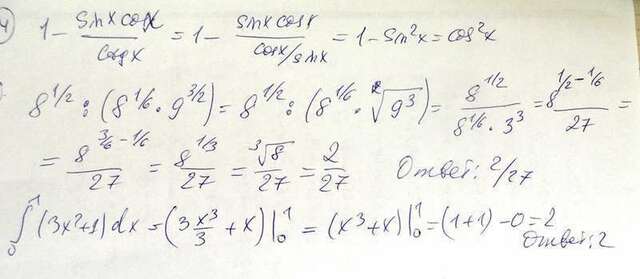 4) 1 - sinx cosx / ctgx = 1 - sinx cosx / (cosx/sinx) = 1 - sin²x = cos²x
8^(1/2) : (8^(1/6) · 9^(3/2)) = 8^(1/2) : (8^(1/6) · ²√9³) = 8^(1/2) / (8^(1/6) · 3³) = 8^(1/2 - 1/6) / 27 =
= 8^(3/6 - 1/6) / 27 = 8^(1/3) / 27 = ³√8 / 27 = 2/27 Ответ: 2/27
∫₀¹ (3x² + 1) dx = (3 x³/3 + x) |₀¹ = (x³ + x) |₀¹ = (1+1) - 0 = 2
Ответ: 2